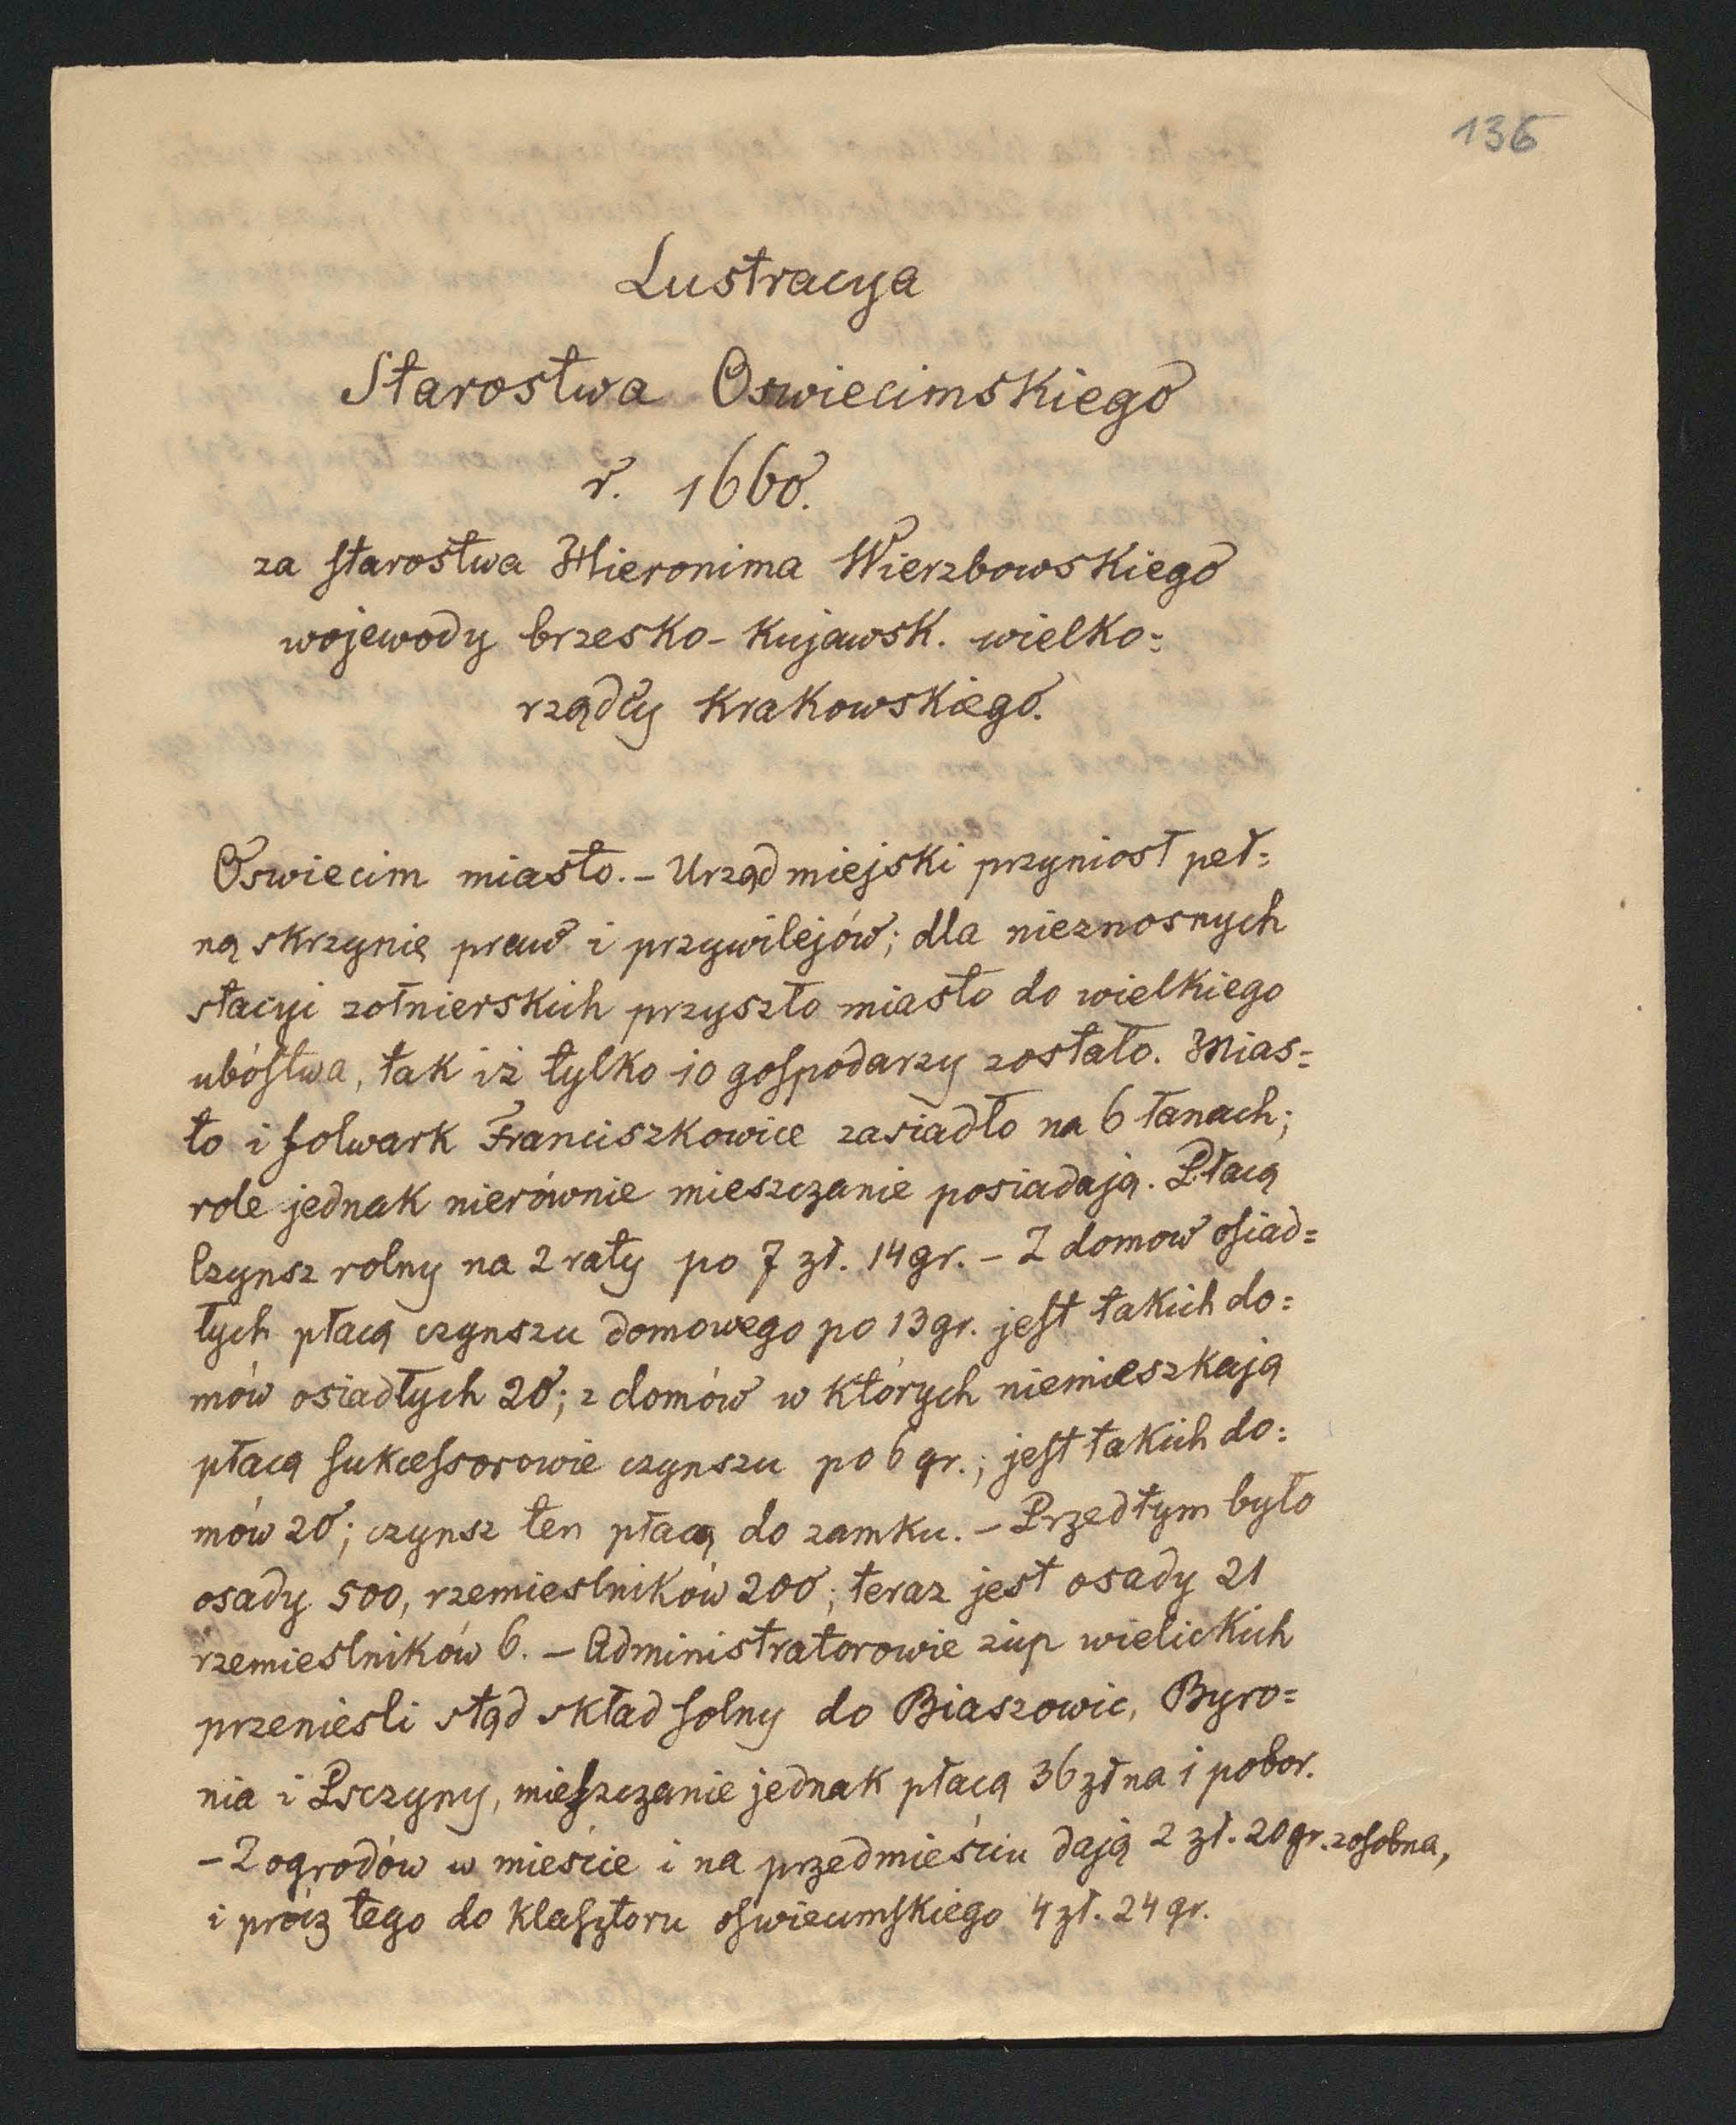 136
Lustracya
Starostwa Oswiecimskiego
r. 1660.
za starostwa Hieronima Wierzbowskiego
wojewody brzesko-Kujawsk. wielko=
rządcy Krakowskiego.
Oswiecim miasto. – Urząd miejski przyniosł peł=
ną skrzynię praw i przywilejów; dla nieznosnych
stacyi zołnierskich przyszło miasto do wielkiego
ubóstwa, tak iz tylko 10 gospodarzy zostało. Mias=
to i folwark Franciszkowice zasiadło na 6 łanach;
role jednak nierównie mieszczanie posiadają. Płacą
Czynsz rolny na 2 raty po 7 zł. 14 gr. – Z domow osiad=
łych płacą czynszu domowego po 13 gr. jest takich do=
mów osiadłych 20; z domów w których niemieszkają
płacą sukcessorowie czynszu po 6 gr.; jest takich do=
mów 20; czynsz ten płacą do zamku. – Przedtym było
osady 500, rzemieslników 200; teraz jest osady 21
rzemieslników 6. – Administratorowie zup wielickich
przeniesli stąd skład solny do Biaszowic, Byro=
nia i Psczyny, mieszczanie jednak płacą 36 zł na 1 pobor.
– Z ogrodów w mieście i na przedmieściu dają 2 zł. 20 gr. zosobna,
i prócz tego do klasztoru oswiecimskiego 4 zł. 24 gr.